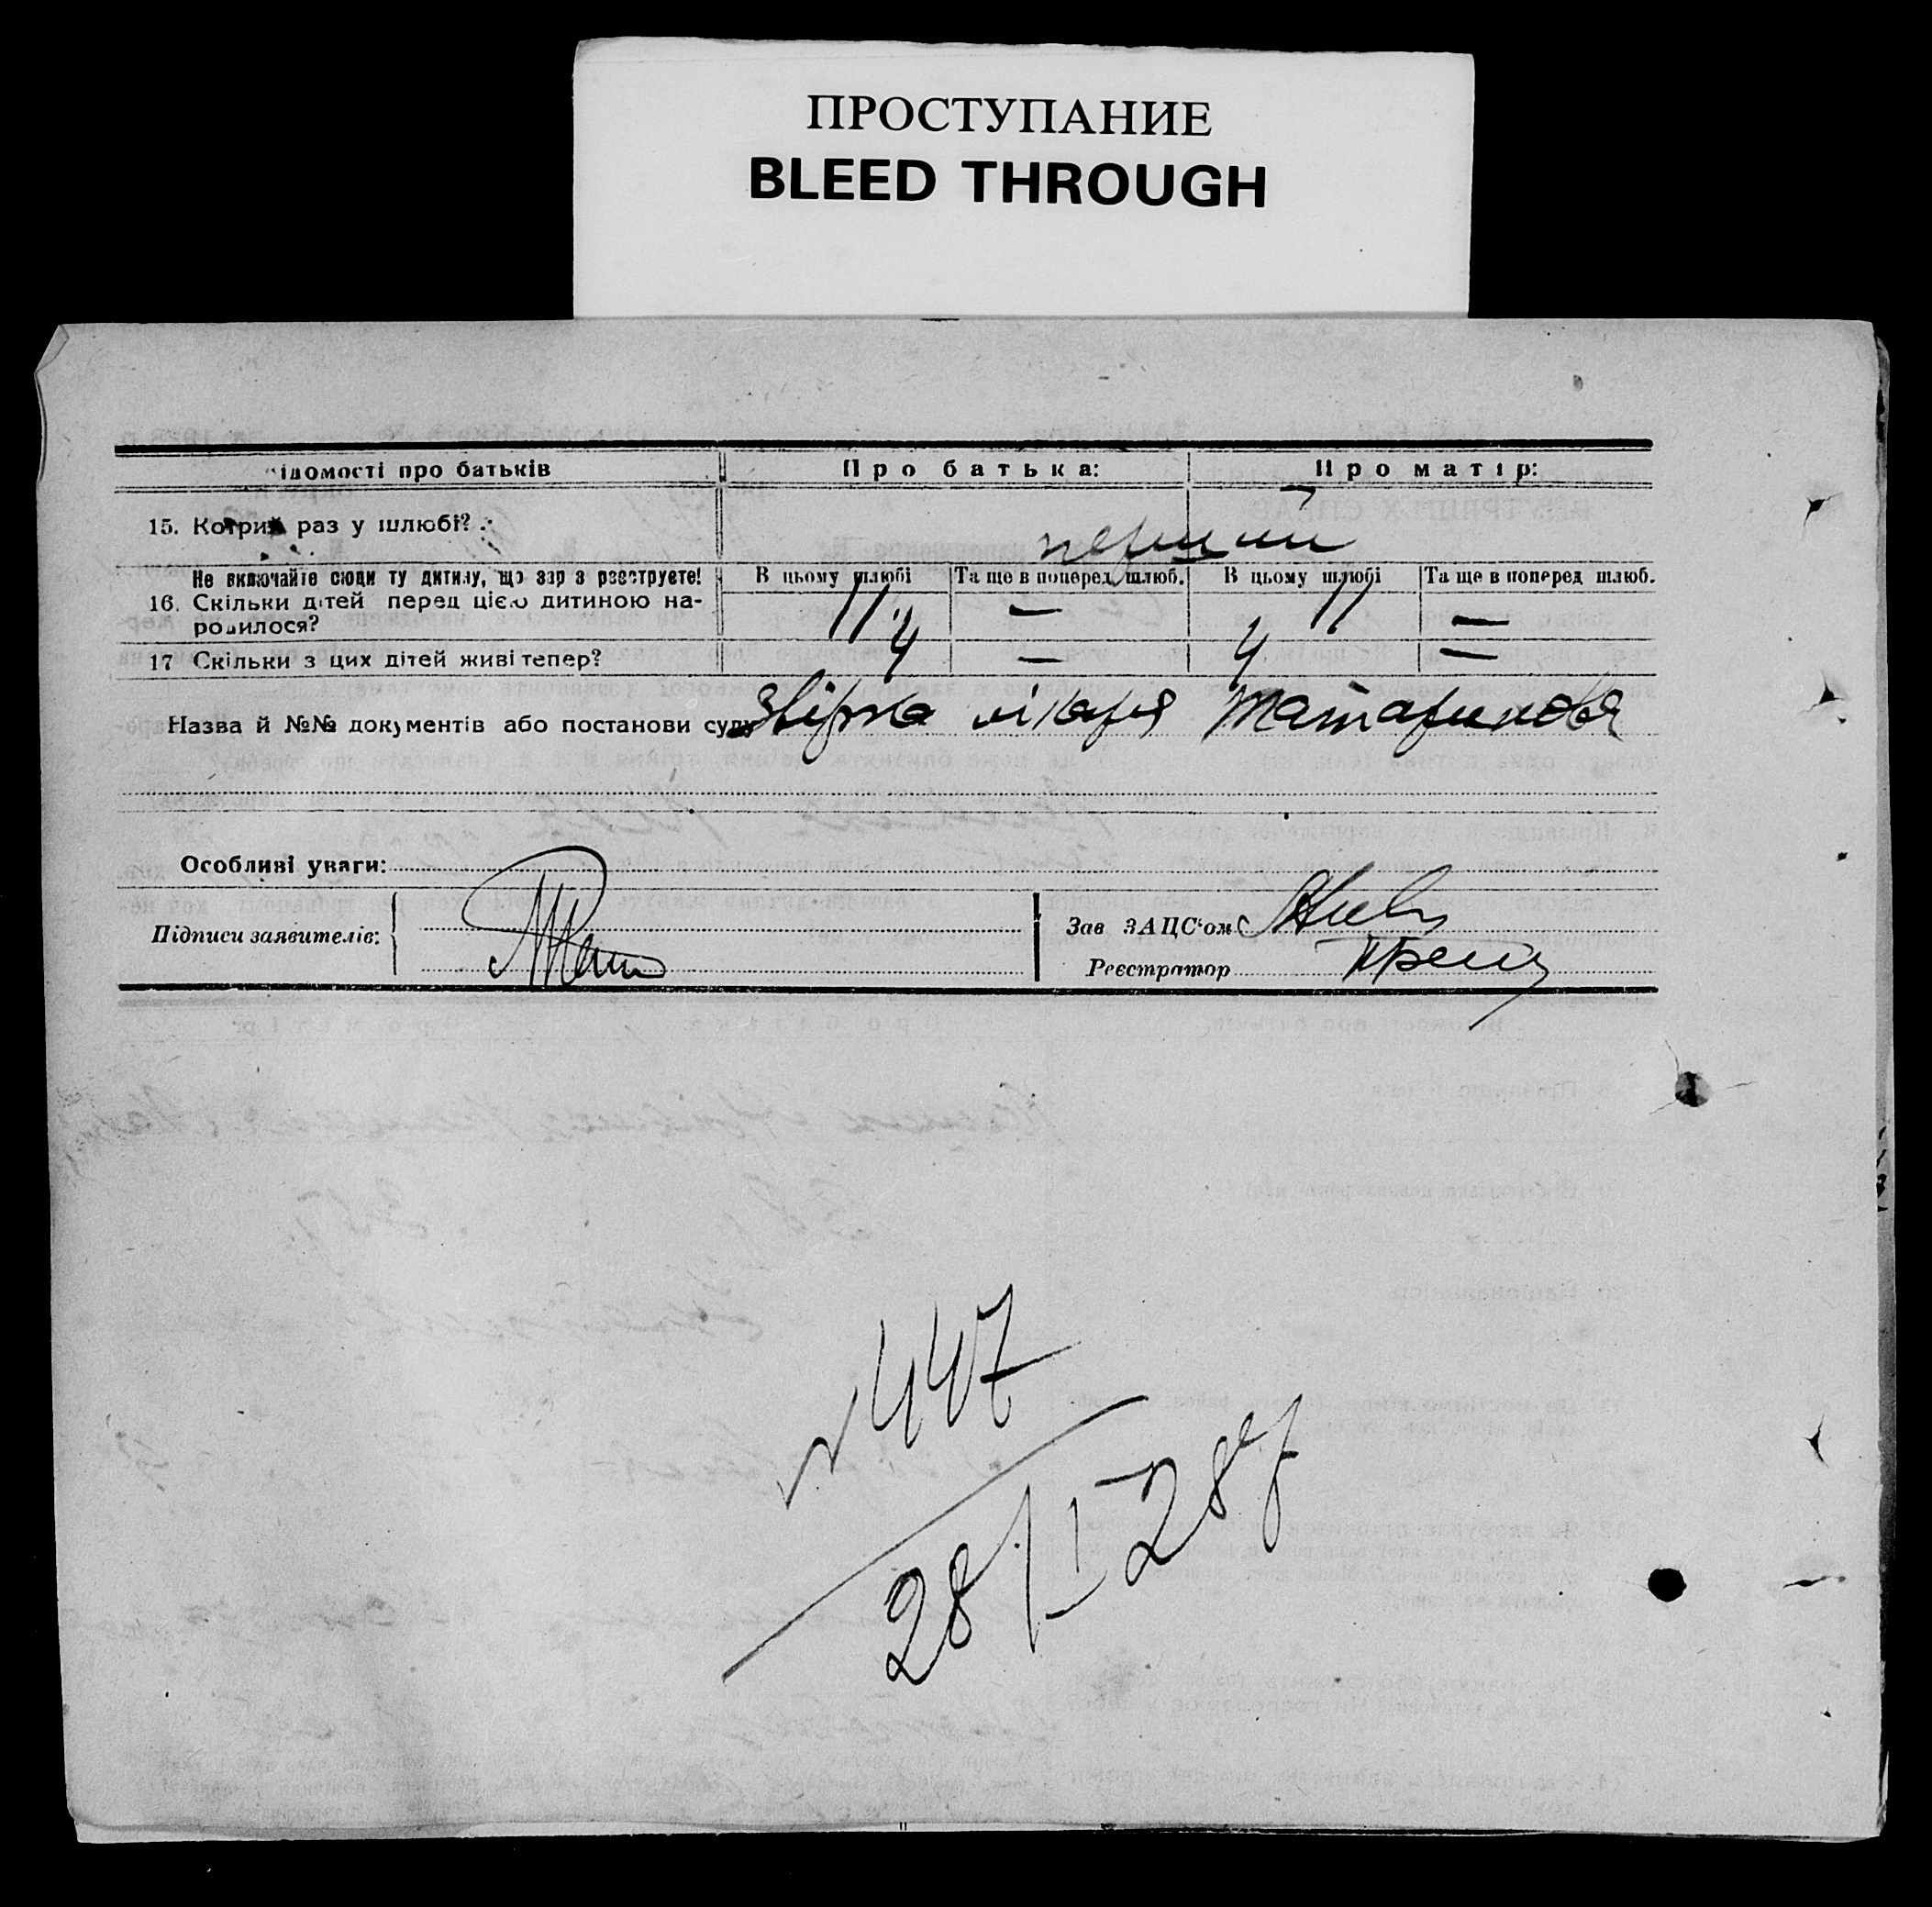 ПРОСТУПАНИЕ
BLEED THROUGH
ідомості про батьків Про батька: Про матір:
15. Котрий раз у шлюбі? перший
Не включайте сюди ту дитину, що зараз реєструєте! В цьому шлюбі Та ще в поперед. шлюб. В цьому шлюбі Та ще в поперед. шлюб.
16. Скільки дітей перед цією дитиною на-
родилося? 11 — 11 —
17 Скільки з цих дітей живі тепер? 4 — 4 —
Назва й №№ документів або постанови суду лікаря Татаринова
Особливі уваги:
Підписи заявителів:
Зав ЗАЦС'ом
Реєстратор
N 447
28/I-28